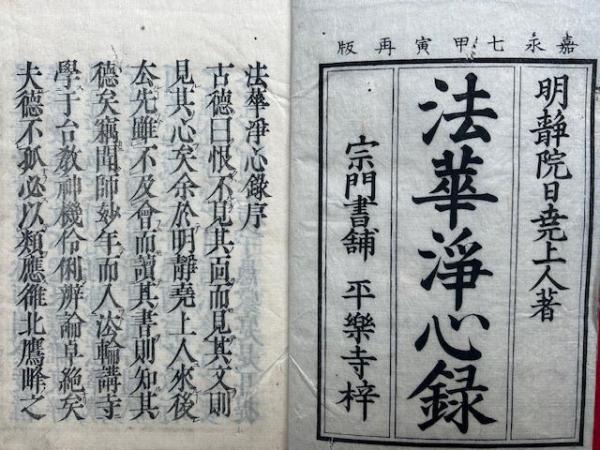 嘉永七甲寅再版
明靜院日堯上人著
法華淨心録
宗門書舗 平樂寺梓
法華淨心錄序
古德曰恨不見其面而見其文則
見其心矣余於明靜堯上人來後
去先雖不及會而讀其書則知其
德矣竊聞師妙年而入法輪講寺
學于台教神機伶俐辨論卓絶矣
大德不孤必以類應雒北鷹峰之